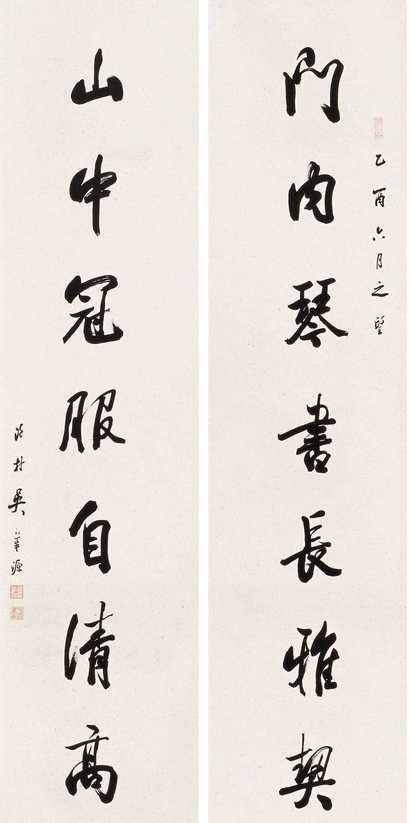 乙酉六月之望
門內琴書長雅契
山中冠服自清高
漁村吳華源